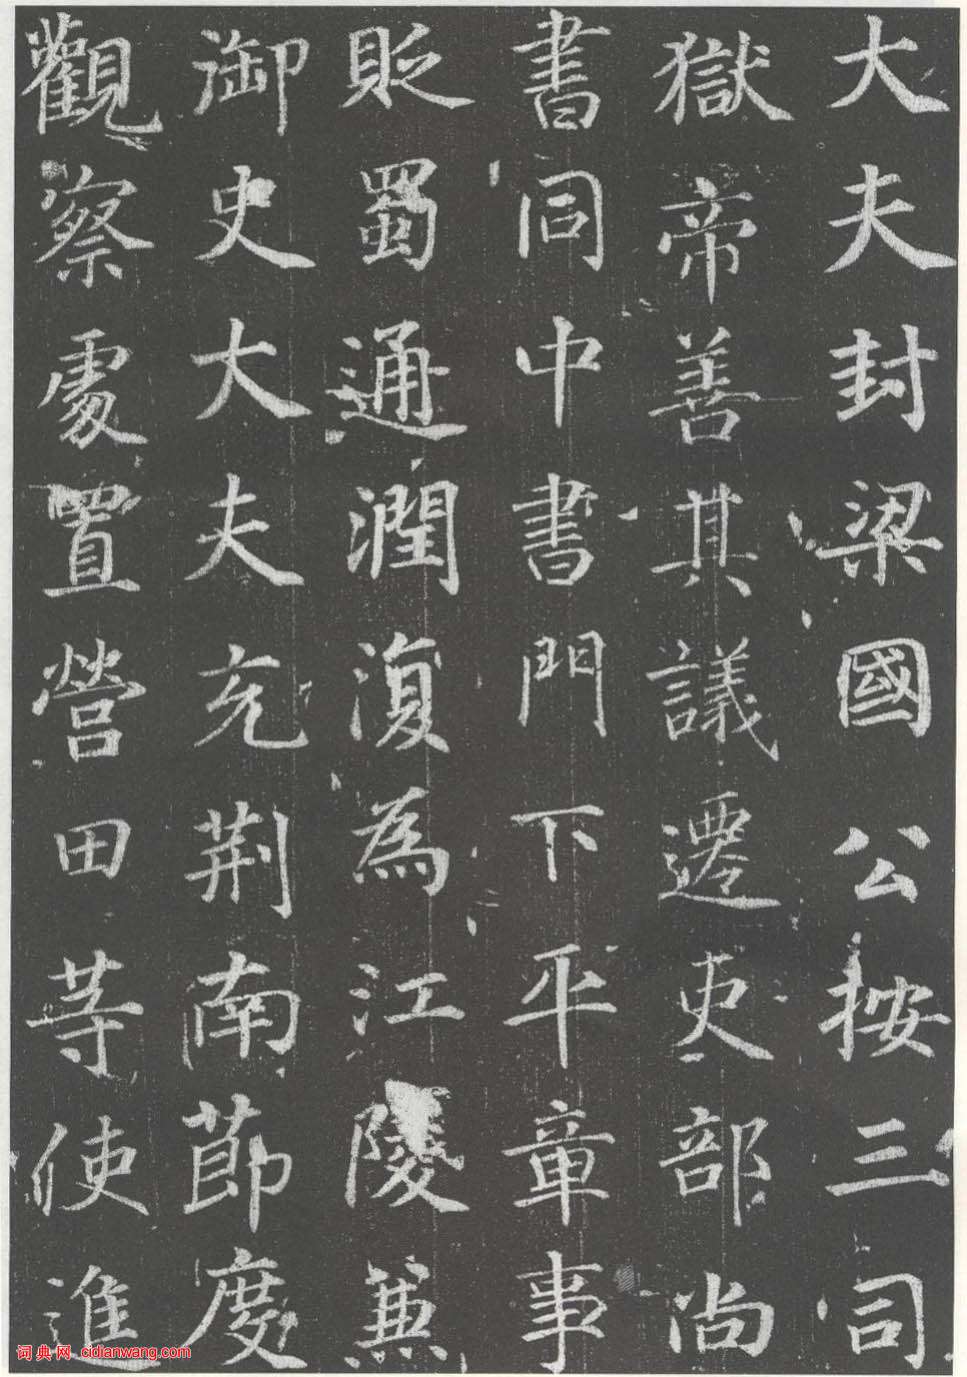 大夫封梁國公按三司
獄帝善其議遷吏部尚
書同中書門下平章事
貶蜀通潤澓為江陵兼
御史大夫充荆南節度
觀察處置營田等使進
词典网 cidianwang.com